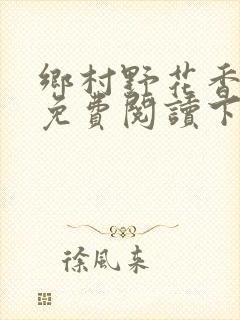 鄉村野花香
免費閱讀下
徐風來